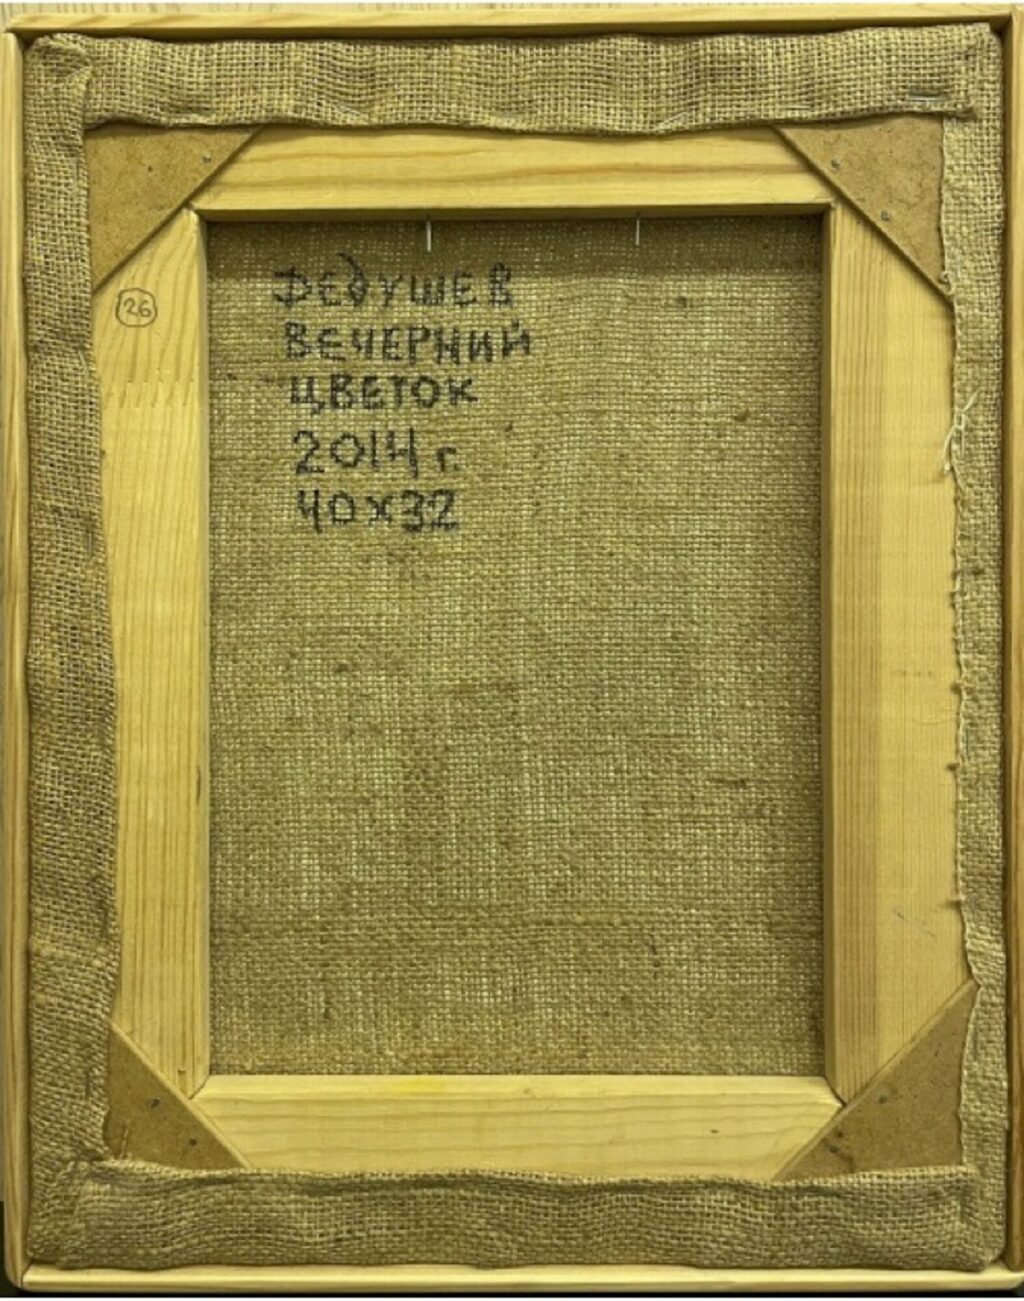 ДЕДУШЕВ
ВЕЧЕРНИЙ
ЦВЕТОК
2014 г.
40х32
26